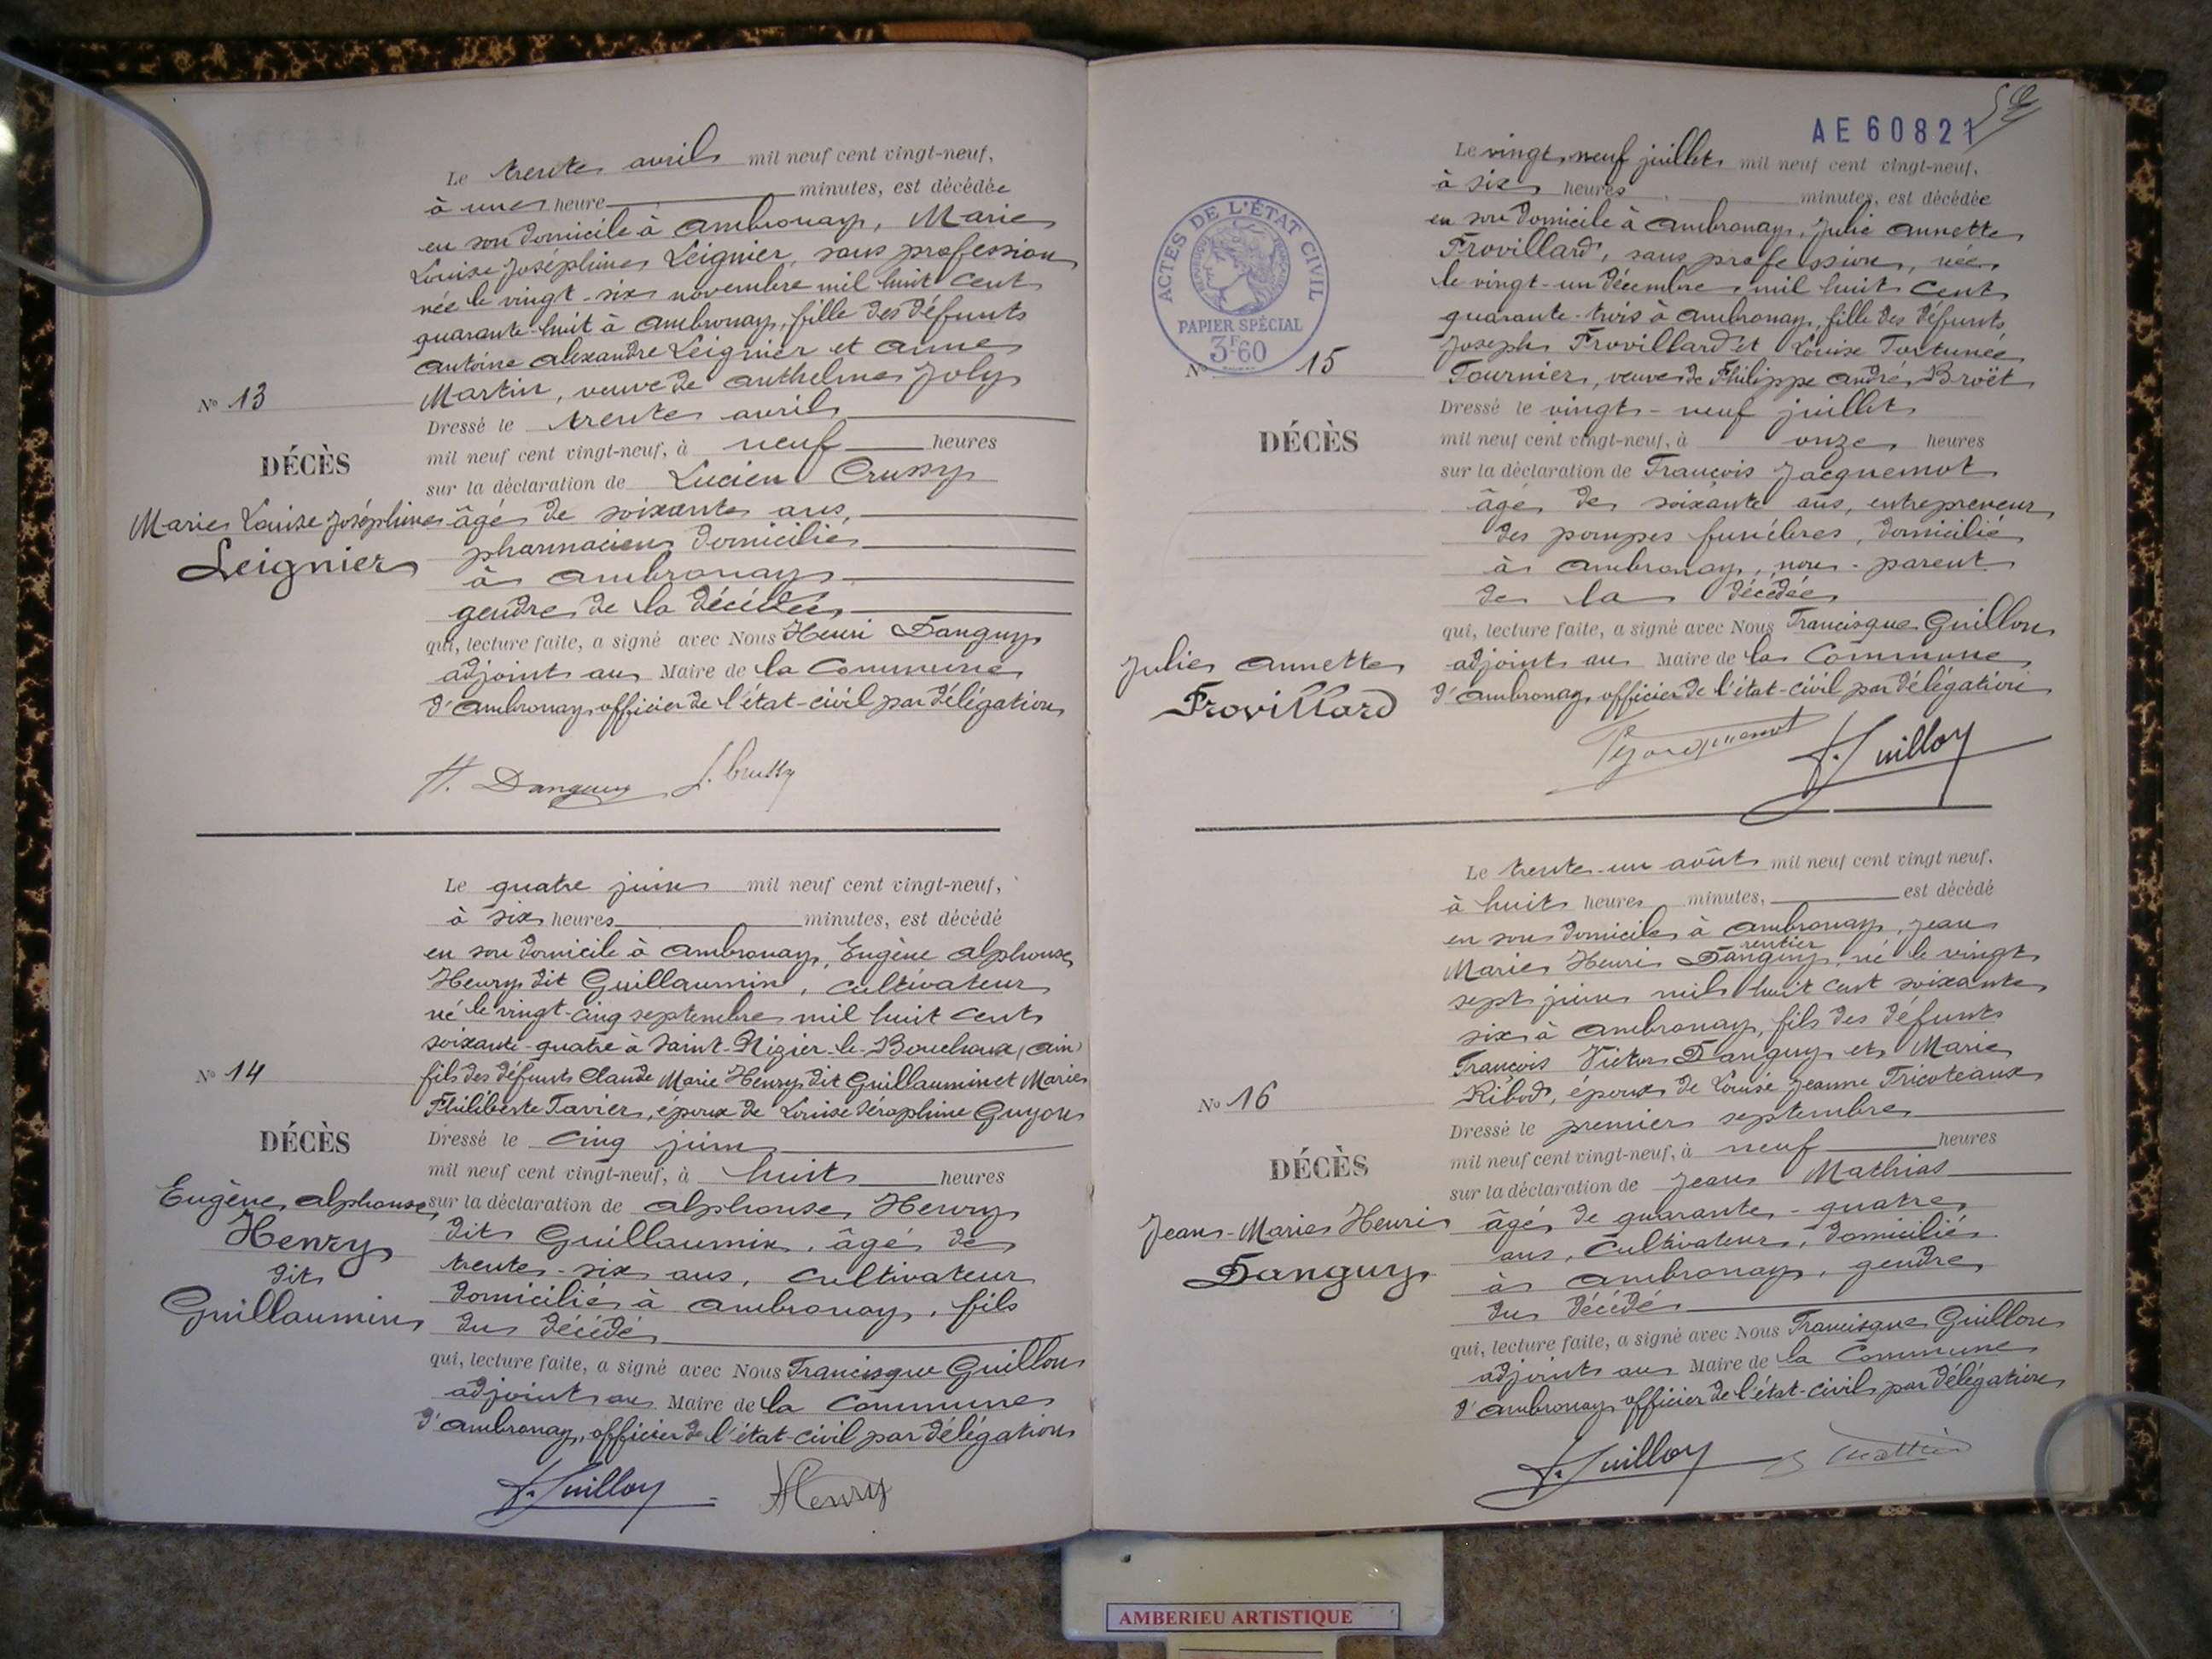 Le trente avril mil neuf cent vingt-neuf,
à une heure minutes, est décédée
en son domicile à Ambronay, Marie
Louise Joséphine Leignier, sans profession
née le vingt-six novembre mil huit cent
quarante-huit à Ambronay, fille des défunts
Antoine Alexandre Leignier et Anne
Martin, veuve de Anthelme Joly
N° 13
Dressé le trente avril
mil neuf cent vingt-neuf, à neuf heures
DÉCÈS
sur la déclaration de Lucien Crussy
Marie Louise Joséphine
Leignier
âgé de soixante ans,
pharmacien domicilié
à Ambronay
gendre de la décédée
qui, lecture faite, a signé avec Nous Henri Danguy
adjoint au Maire de la Commune
d'Ambronay, officier de l'état-civil par délégation
H. Danguy L. Crussy
Le quatre juin mil neuf cent vingt-neuf,
à six heures minutes, est décédé
en son domicile à Ambronay, Eugène Alphonse
Henry dit Guillaumin, cultivateur
né le vingt-cinq septembre mil huit cent
soixante-quatre à Saint-Nizier-le-Bouchoux (Ain)
N° 14
fils des défunts Claude Marie Henry dit Guillaumin et Marie
Philiberte Tavier, époux de Louise Séraphine Guyon
DÉCÈS
Dressé le cinq juin
mil neuf cent vingt-neuf, à huit heures
Eugène Alphonse
Henry
dit
Guillaumin
sur la déclaration de Alphonse Henry
dit Guillaumin, âgé de
trente-six ans, cultivateur
domicilié à Ambronay, fils
du décédé
qui, lecture faite, a signé avec Nous Francisque Guillon
adjoint au Maire de la Commune
d'Ambronay, officier de l'état-civil par délégation
F. Guillon AHenry
AE 60821
ACTES DE L'ÉTAT CIVIL
PAPIER SPÉCIAL
3F60
Le vingt-neuf juillet mil neuf cent vingt-neuf,
à six heures minutes, est décédée
en son domicile à Ambronay, Julie Annette
Frovillard, sans profession, née
le vingt-un décembre mil huit cent
quarante-trois à Ambronay, fille des défunts
Joseph Frovillard et Louise Fortunée
N° 15
Fournier, veuve de Philippe André Broët
Dressé le vingt-neuf juillet
DÉCÈS
mil neuf cent vingt-neuf, à onze heures
sur la déclaration de François Jacquemot
âgé de soixante ans, entrepreneur
des pompes funèbres, domicilié
à Ambronay, non-parent
de la décédée
Julie Annette
Frovillard
qui, lecture faite, a signé avec Nous Francisque Guillon
adjoint au Maire de la Commune
d'Ambronay, officier de l'état-civil par délégation
Jacquemot F. Guillon
Le trente-un août mil neuf cent vingt neuf,
à huit heures minutes, est décédé
en son domicile à Ambronay, Jean
rentier
Marie Henri Danguy, né le vingt
sept juin mil huit cent soixante
six à Ambronay, fils des défunts
François Victor Danguy et Marie
N° 16
Ribod, époux de Louise Jeanne Tricoteaux
Dressé le premier septembre
DÉCÈS
mil neuf cent vingt-neuf, à neuf heures
sur la déclaration de Jean Mathias
Jean-Marie Henri
Danguy
âgé de quarante-quatre
ans, cultivateur, domicilié
à Ambronay, gendre
du décédé
qui, lecture faite, a signé avec Nous Francisque Guillon
adjoint au Maire de la Commune
d'Ambronay officier de l'état-civil par délégation
F. Guillon
AMBERIEU ARTISTIQUE